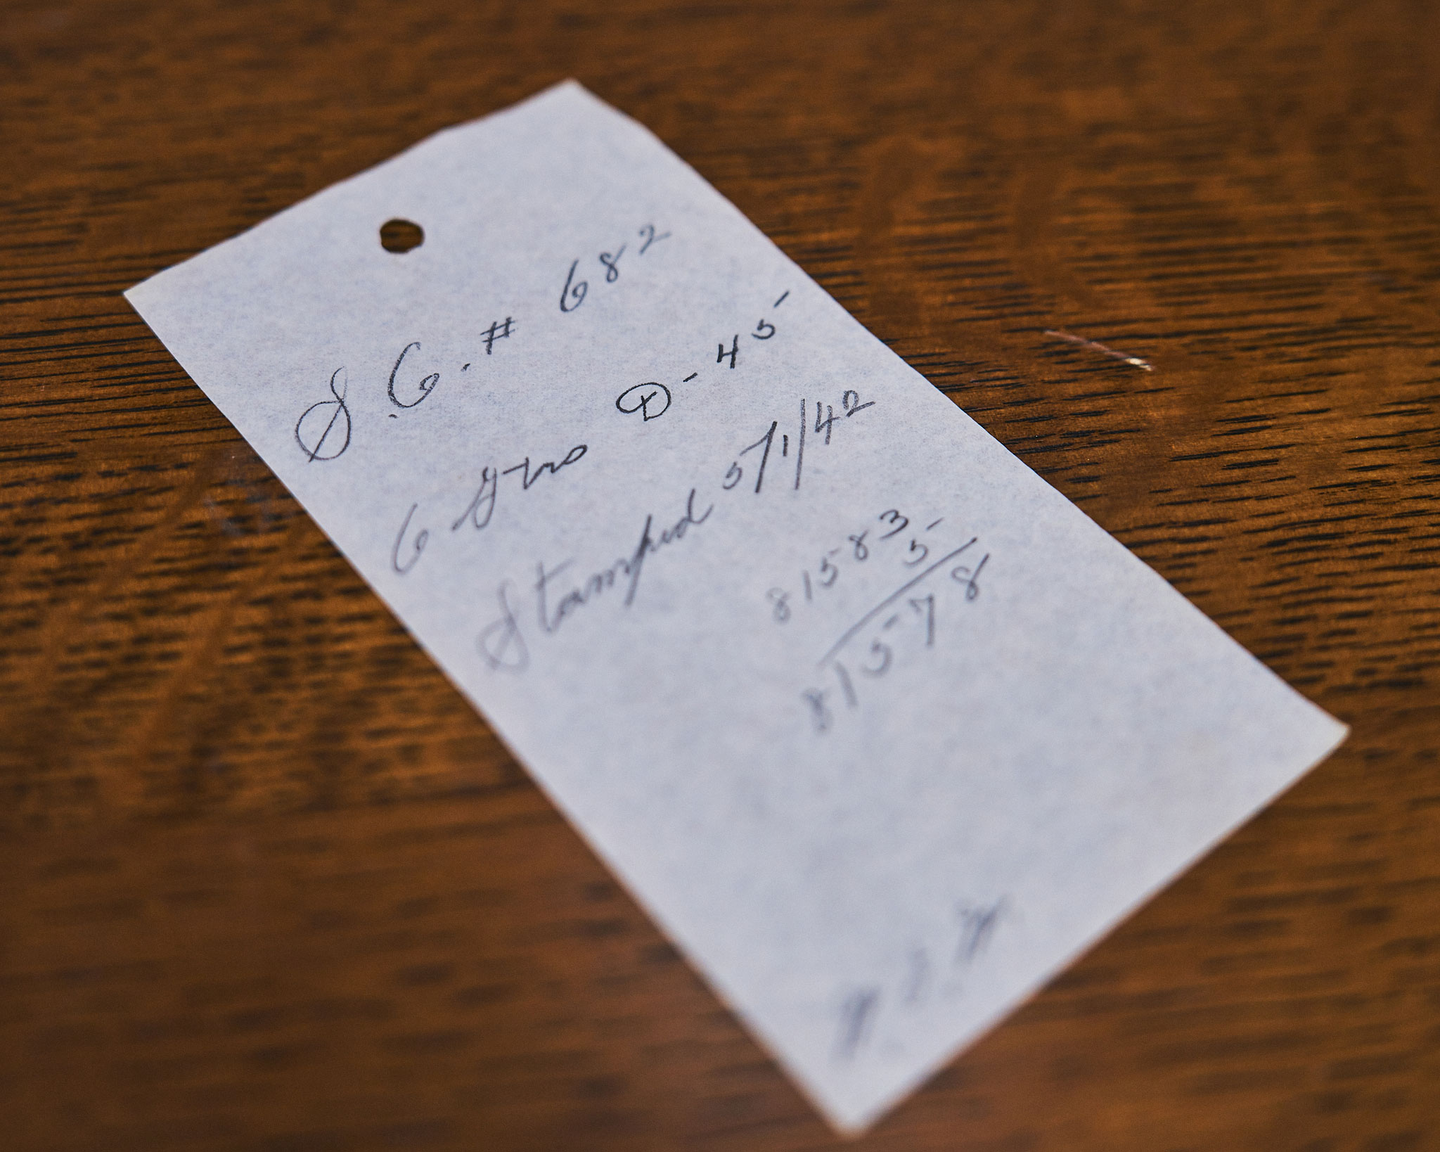 S.O. # 682
6 Gtrs D-45
Stamped 5/1/42
81583
5
81578